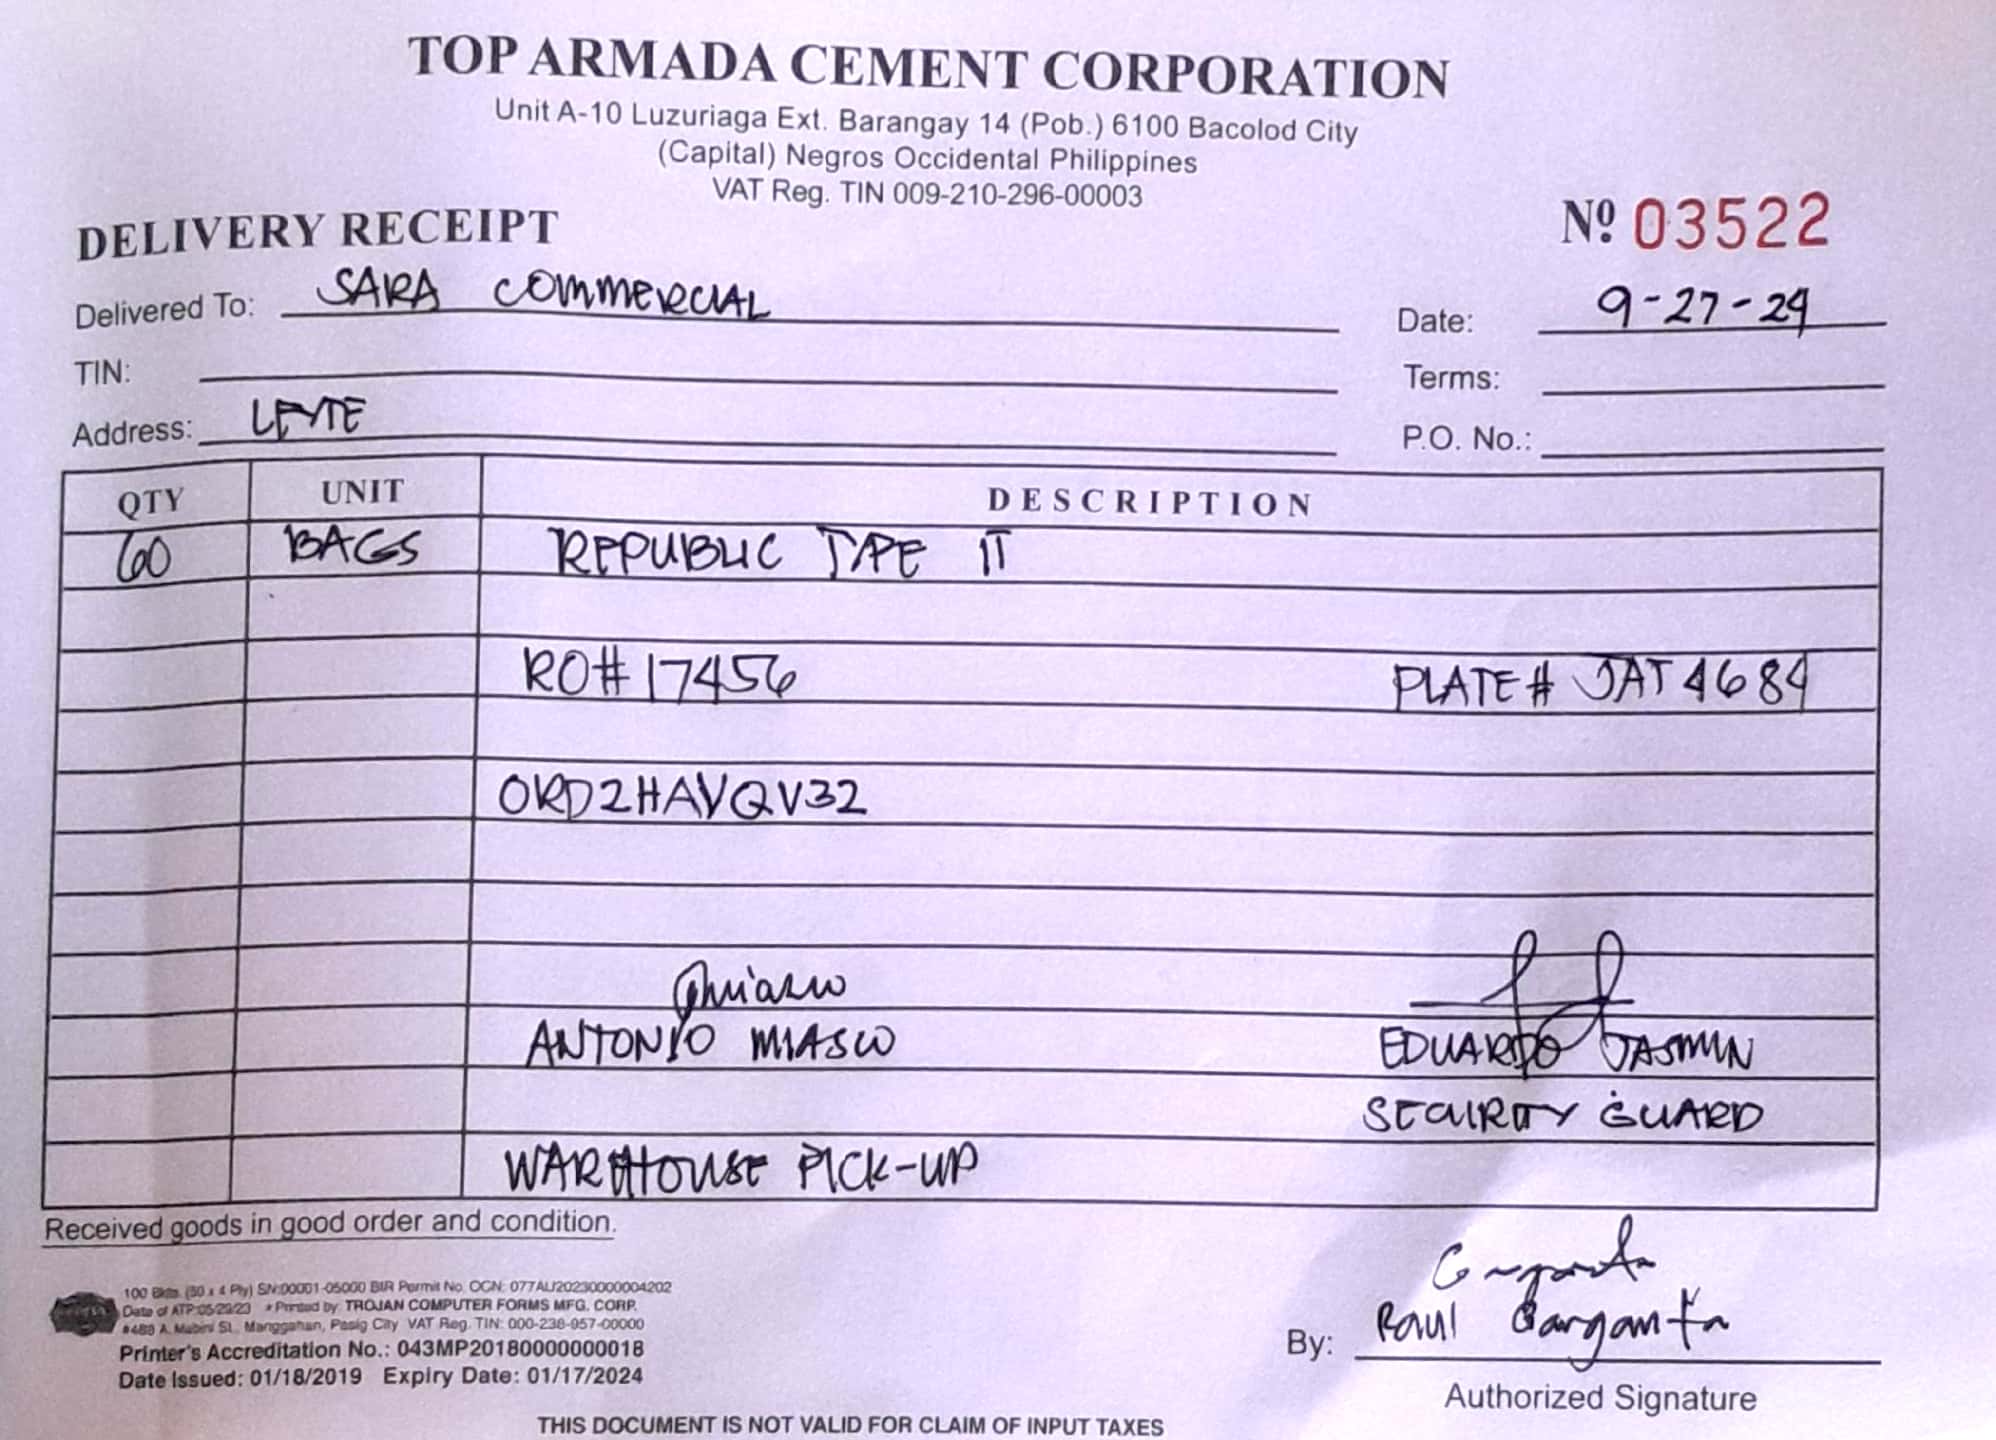 TOP ARMADA CEMENT CORPORATION
Unit A-10 Luzuriaga Ext. Barangay 14 (Pob.) 6100 Bacolod City
(Capital) Negros Occidental Philippines
VAT Reg. TIN 009-210-296-00003
DELIVERY RECEIPT
Nº 03522
Delivered To: SARA COMMERCIAL
Date: 9-27-24
TIN:
Terms:
Address: LEYTE
P.O. No.:
QTY UNIT DESCRIPTION
60 BAGS REPUBLIC TYPE 1T
RO# 17456 PLATE# JAT 4684
ORD2HAVQV32
ANTONIO MIASCO EDUARDO JASMIN
SECURITY GUARD
WAREHOUSE PICK-UP
Received goods in good order and condition.
100 Bkts. (50 x 4 Ply) SN:00001-05000 BIR Permit No. OCN: 077AU20230000004202
Date of ATP:05/29/23 • Printed by: TROJAN COMPUTER FORMS MFG. CORP.
#488 A. Mabini St., Manggahan, Pasig City VAT Reg. TIN: 000-238-957-00000
Printer's Accreditation No.: 043MP20180000000018
Date Issued: 01/18/2019 Expiry Date: 01/17/2024
By: Raul Garganta
Authorized Signature
THIS DOCUMENT IS NOT VALID FOR CLAIM OF INPUT TAXES